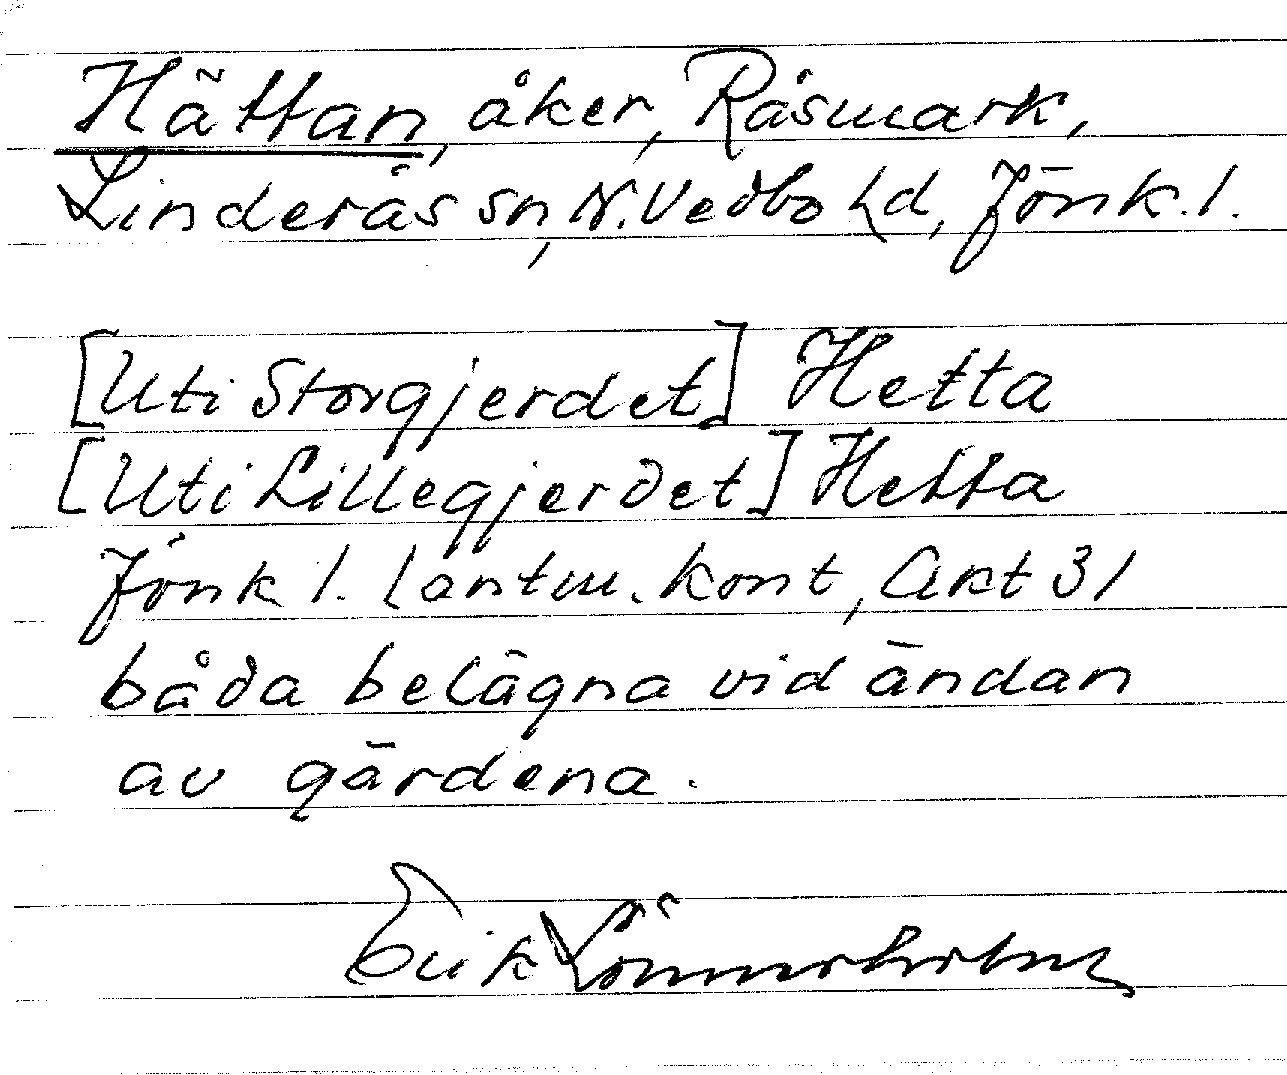 Hättan, åker, Råsmark,
Linderås sn, N. Vedbo hd, Jönk. l.
[Uti Storgjerdet] Hetta
[Uti Lillegjerdet] Hetta
Jönk l. lantm. kont, Akt 31
båda belägna vid ändan
av gärdena.
Erik Lönnerholm